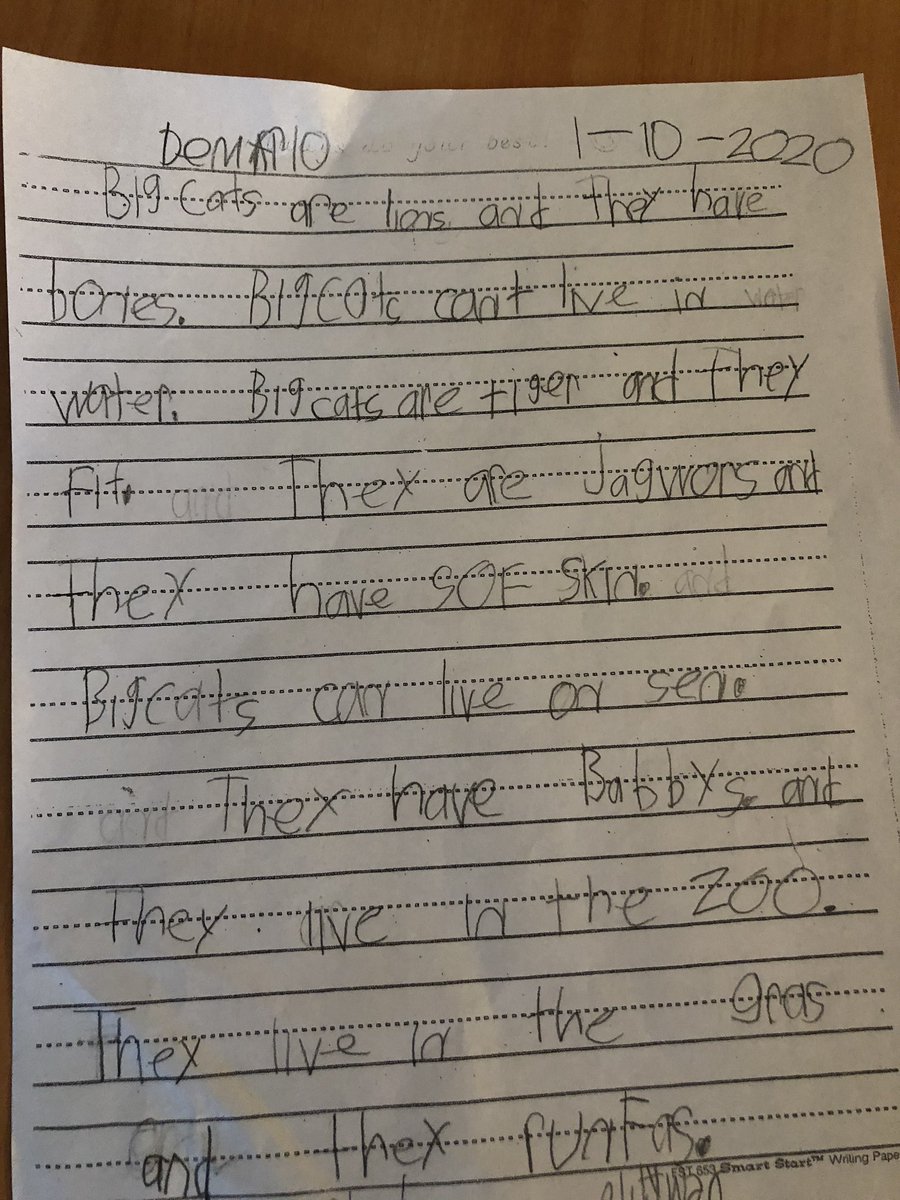 DeMArio 1-10-2020
Big Cats are lions and They have
bones. BIgcats can't live in
water. Big cats are tiger and they
Fit. Thex are Jagwors and
thex have SOF Skin.
BIgcats can live on
and Thex have Babbys and
They live in the Zoo.
Thex live in the gras
and thex run Fas.
EST 653 Smart Start™ Writing Pape